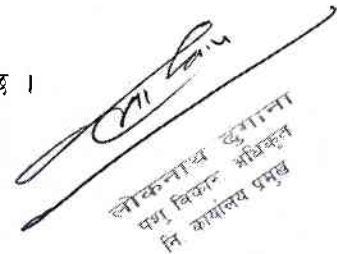 छ ।
लोकनाथ ढुगाना
पशु विकास अधिकृत
नि. कार्यालय प्रमुख